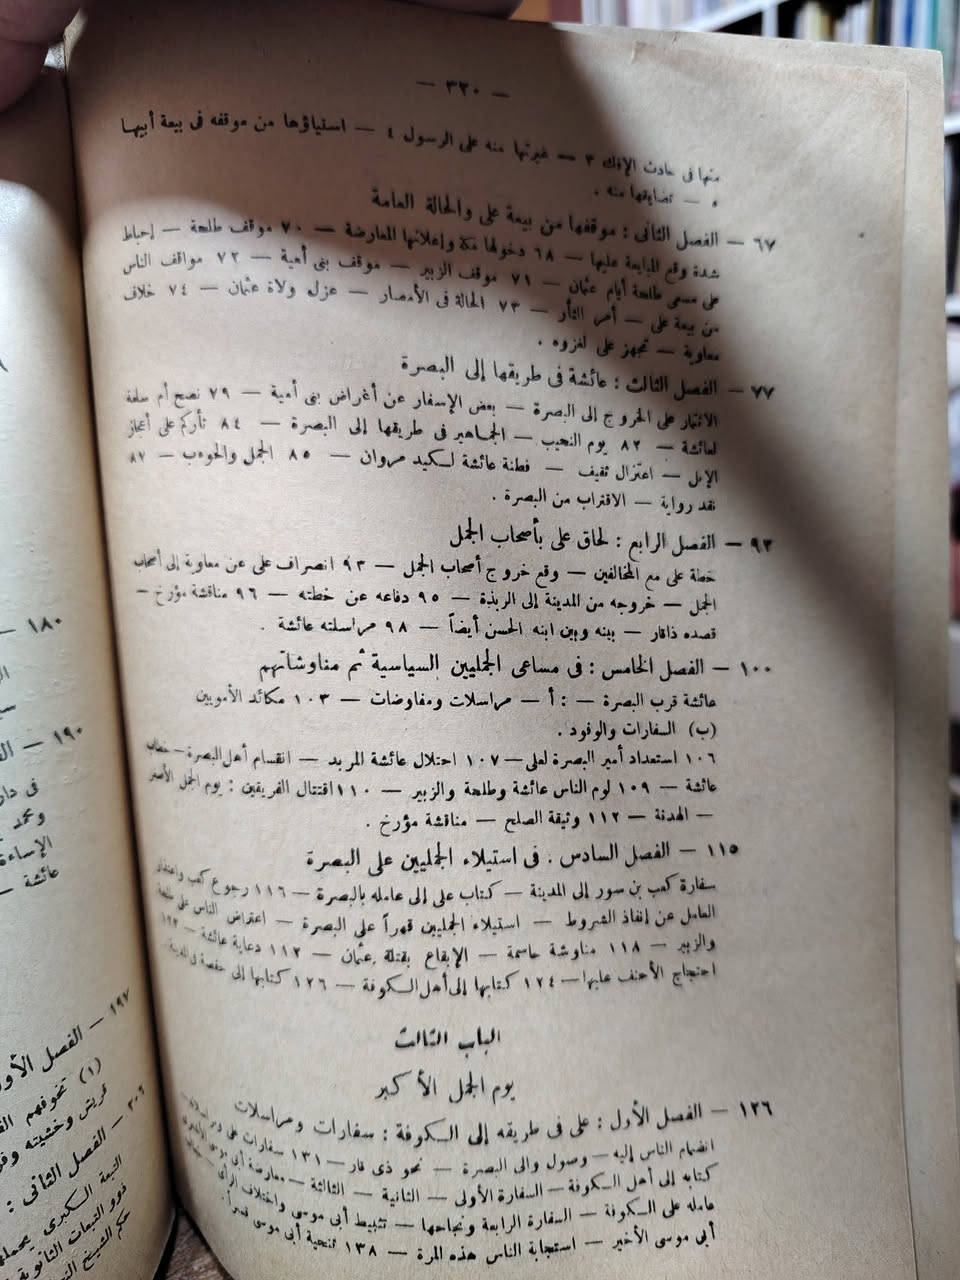 — ٣٢٠ —
منها فى حادث الإفك ٣ — غيرتها منه على الرسول ٤ — استياؤها من موقفه فى بيعة أبيها
— تضايقها منه .
٦٧ — الفصل الثانى : موقفها من بيعة على والحالة العامة
شدة وقع المبايعة عليها — ٦٨ دخولها مكة وإعلانها المعارضة — ٧٠ موقف طلحة — إحباط
على مسعى طلحة أيام عثمان — ٧١ موقف الزبير — موقف بنى أمية — ٧٢ مواقف الناس
من بيعة على — أمر الثأر — ٧٣ الحالة فى الأمصار — عزله ولاة عثمان — ٧٤ خلاف
معاوية — تجهز على لغزوه .
٧٧ — الفصل الثالث : عائشة فى طريقها إلى البصرة
الائتمار على الخروج إلى البصرة — بعض الإسفار عن أغراض بنى أمية — ٧٩ نصح أم سلمة
لعائشة — ٨٢ يوم النحيب — الجماهير فى طريقها إلى البصرة — ٨٤ ثأركم على أعجاز
الإبل — اعتزال ثقيف — فطنة عائشة لكيد مروان — ٨٥ الجمل والحوءب — ٨٧
نقد رواية — الاقتراب من البصرة .
٩٣ — الفصل الرابع : لحاق على بأصحاب الجمل
خطة على مع المخالفين — وقع خروج أصحاب الجمل — ٩٣ انصراف على عن معاوية إلى أصحاب
الجمل — خروجه من المدينة إلى الربذة — ٩٥ دفاعه عن خطته — ٩٦ مناقشة مؤرخ —
قصده ذاقار — بينه وبين ابنه الحسن أيضاً — ٩٨ مراسلته عائشة .
١٠٠ — الفصل الخامس : فى مساعى الجمليين السياسية ثم مناوشاتهم
عائشة قرب البصرة — : أ — مراسلات ومفاوضات — ١٠٣ مكائد الأمويين
(ب) السفارات والوفود .
١٠٦ استعداد أمير البصرة لعلى — ١٠٧ احتلال عائشة المربد — انقسام أهل البصرة — خطاب
عائشة — ١٠٩ لوم الناس عائشة وطلحة والزبير — ١١٠ اقتتال الفريقين : يوم الجمل الأصغر
— الهدنة — ١١٢ وثيقة الصلح — مناقشة مؤرخ .
١١٥ — الفصل السادس . فى استيلاء الجمليين على البصرة
سفارة كعب بن سور إلى المدينة — كتاب على إلى عامله بالبصرة — ١١٦ رجوع كعب واعتذار
العامل عن إنفاذ الشروط — استيلاء الجمليين قهراً على البصرة — اعتراض الناس على طلحة
والزبير — ١١٨ مناوشة حاسمة — الإيقاع بقتلة عثمان — ١١٢ دعاية عائشة —
احتجاج الأحنف عليها — ١٢٤ كتابها إلى أهل الكوفة — ١٢٦ كتابها إلى حفصة فى المدينة .
الباب الثالث
يوم الجمل الأكبر
١٢٦ — الفصل الأول : على فى طريقه إلى الكوفة : سفارات ومراسلات
انضمام الناس إليه — وصول والى البصرة — نحو ذى قار — ١٣١ سفارات على
كتابه إلى أهل الكوفة — السفارة الأولى — الثانية — الثالثة — معارضة أبى موسى
عامله على الكوفة — السفارة الرابعة ونجاحها — تثبيط أبى موسى واختلاف الرأى —
أبى موسى الأخير — استجابة الناس هذه المرة — ١٣٨ تنحية أبى موسى قسراً .
١٨٠ —
١٩٠ —
فى دار
ومحمد
الإساءة
عائشة —
١٩٧ — الفصل الأول
(١) تخوفهم
قريش وخشيته
— الفصل الثانى :
التبعة الكبرى يحملها
ذوو التبعات الثانوية
حكم الشيخ